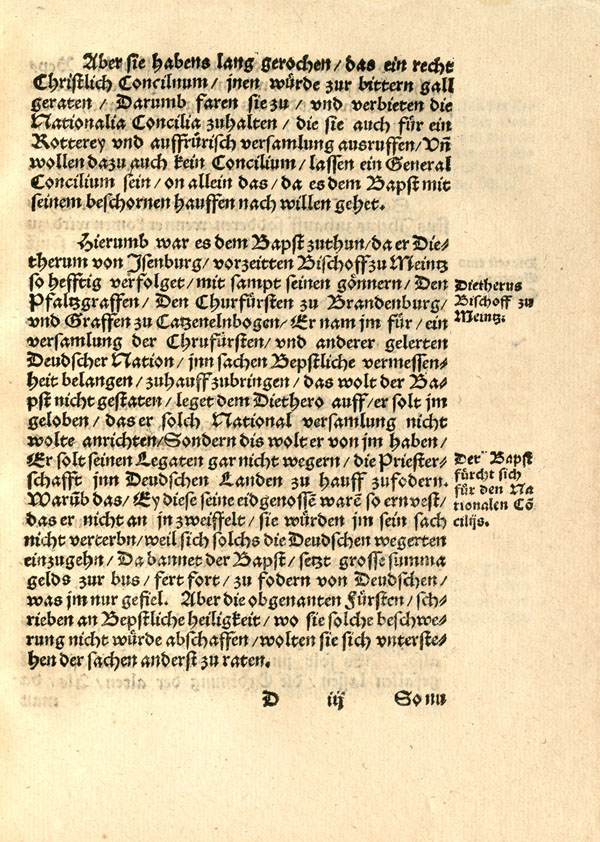 Aber sie habens lang gerochen / das ein recht
Christlich Concilium / jnen würde zur bittern gall
geraten / Darumb faren sie zu / vnd verbieten die
Nationalia Concilia zuhalten / die sie auch für ein
Rotterey vnd auffrürisch versamlung ausruffen / Vñ
wollen dazu auch kein Concilium / lassen ein General
Concilium sein / on allein das / da es dem Bapst mit
seinem beschornen hauffen nach willen gehet.
Hierumb war es dem Bapst zuthun / da er Die⸗
therum von Isenburg / vorzeitten Bischoff zu Meintz
so hefftig verfolget / mit sampt seinen gönnern / Den
Pfaltzgraffen / Den Churfürsten zu Brandenburg /
vnd Graffen zu Catzenelnbogen / Er nam jm für / ein
versamlung der Chrufürsten / vnd anderer gelerten
Deudscher Nation / jnn sachen Bepstliche vermessen⸗
heit belangen / zuhauff zubringen / das wolt der Ba⸗
pst nicht gestaten / leget dem Diethero auff / er solt jm
geloben / das er solch National versamlung nicht
wolte anrichten / Sondern dis wolt er von jm haben /
Er solt seinen Legaten gar nicht wegern / die Priester⸗
schafft jnn Deudschen Landen zu hauff zufodern.
Warũb das / Ey diese seine eidgenossẽ warẽ so ernvest /
das er nicht an jn zweiffelt / sie würden jm sein sach
nicht verterbn / weil sich solchs die Deudschen wegerten
einzugehn / Da bannet der Bapst / setzt grosse summa
gelds zur bus / fert fort / zu fodern von Deudschen /
was jm nur gefiel. Aber die obgenanten Fürsten / sch⸗
rieben an Bepstliche heiligkeit / wo sie solche beschwe⸗
rung nicht würde abschaffen / wolten sie sich vnterste⸗
hen der sachen anderst zu raten.
Dietherus
Bischoff zu
Meintz.
Der Bapst
fürcht sich
für den Na
tionalen Cõ
cilijs.
D iij Sonn